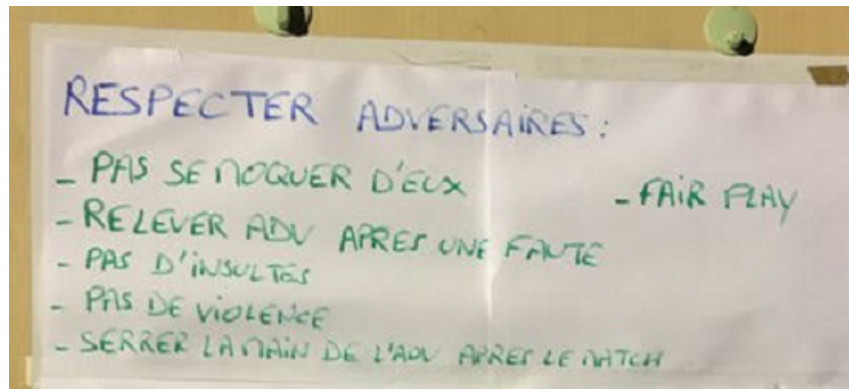 RESPECTER ADVERSAIRES :
- PAS SE MOQUER D'EUX
- FAIR PLAY
- RELEVER ADV APRES UNE FAUTE
- PAS D'INSULTES
- PAS DE VIOLENCE
- SERRER LA MAIN DE L'ADV APRES LE MATCH